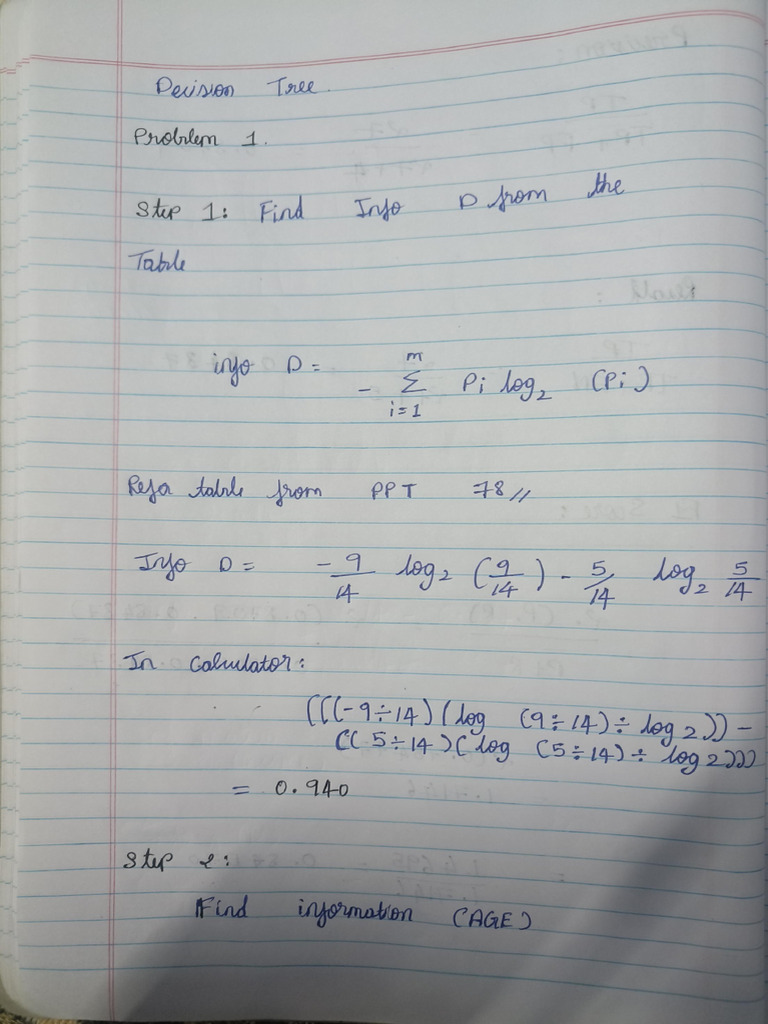 Decision Tree.
Problem 1.
Step 1: Find Info D from the
Table
info D = - m Σ i=1 Pi log₂ (Pi)
Refer table from PPT 78 //
Info D = -9/14 log₂ (9/14) - 5/14 log₂ 5/14
In Calculator:
(((-9÷14)(log (9÷14)÷ log 2)) -
((5÷14)(log (5÷14)÷ log 2)))
= 0.940
Step 2:
Find information (AGE)